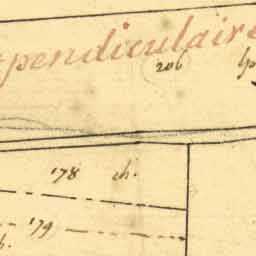 pendiculaire
206
178 ch.
179